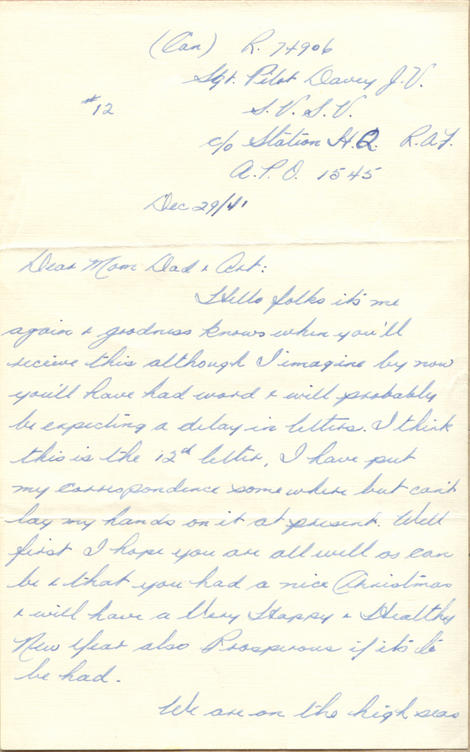 (Can) R. 74906
Sgt. Pilot Davey J.V.
#12 S.V.S.V.
c/o Station H.Q. R.A.F.
A.P.O. 1545
Dec 29/41
Dear Mom Dad & Art:
Hello folks it's me
again & goodness knows when you'll
recieve this although I imagine by now
you'll have had word & will probably
be expecting a delay in letters. I think
this is the 12th letter, I have put
my correspondence somewhere but can't
lay my hands on it at present. Well
first I hope you are all well as can
be & that you had a nice Christmas
& will have a Very Happy & Healthy
New Year also Prosperous if it's to
be had.
We are on the high seas